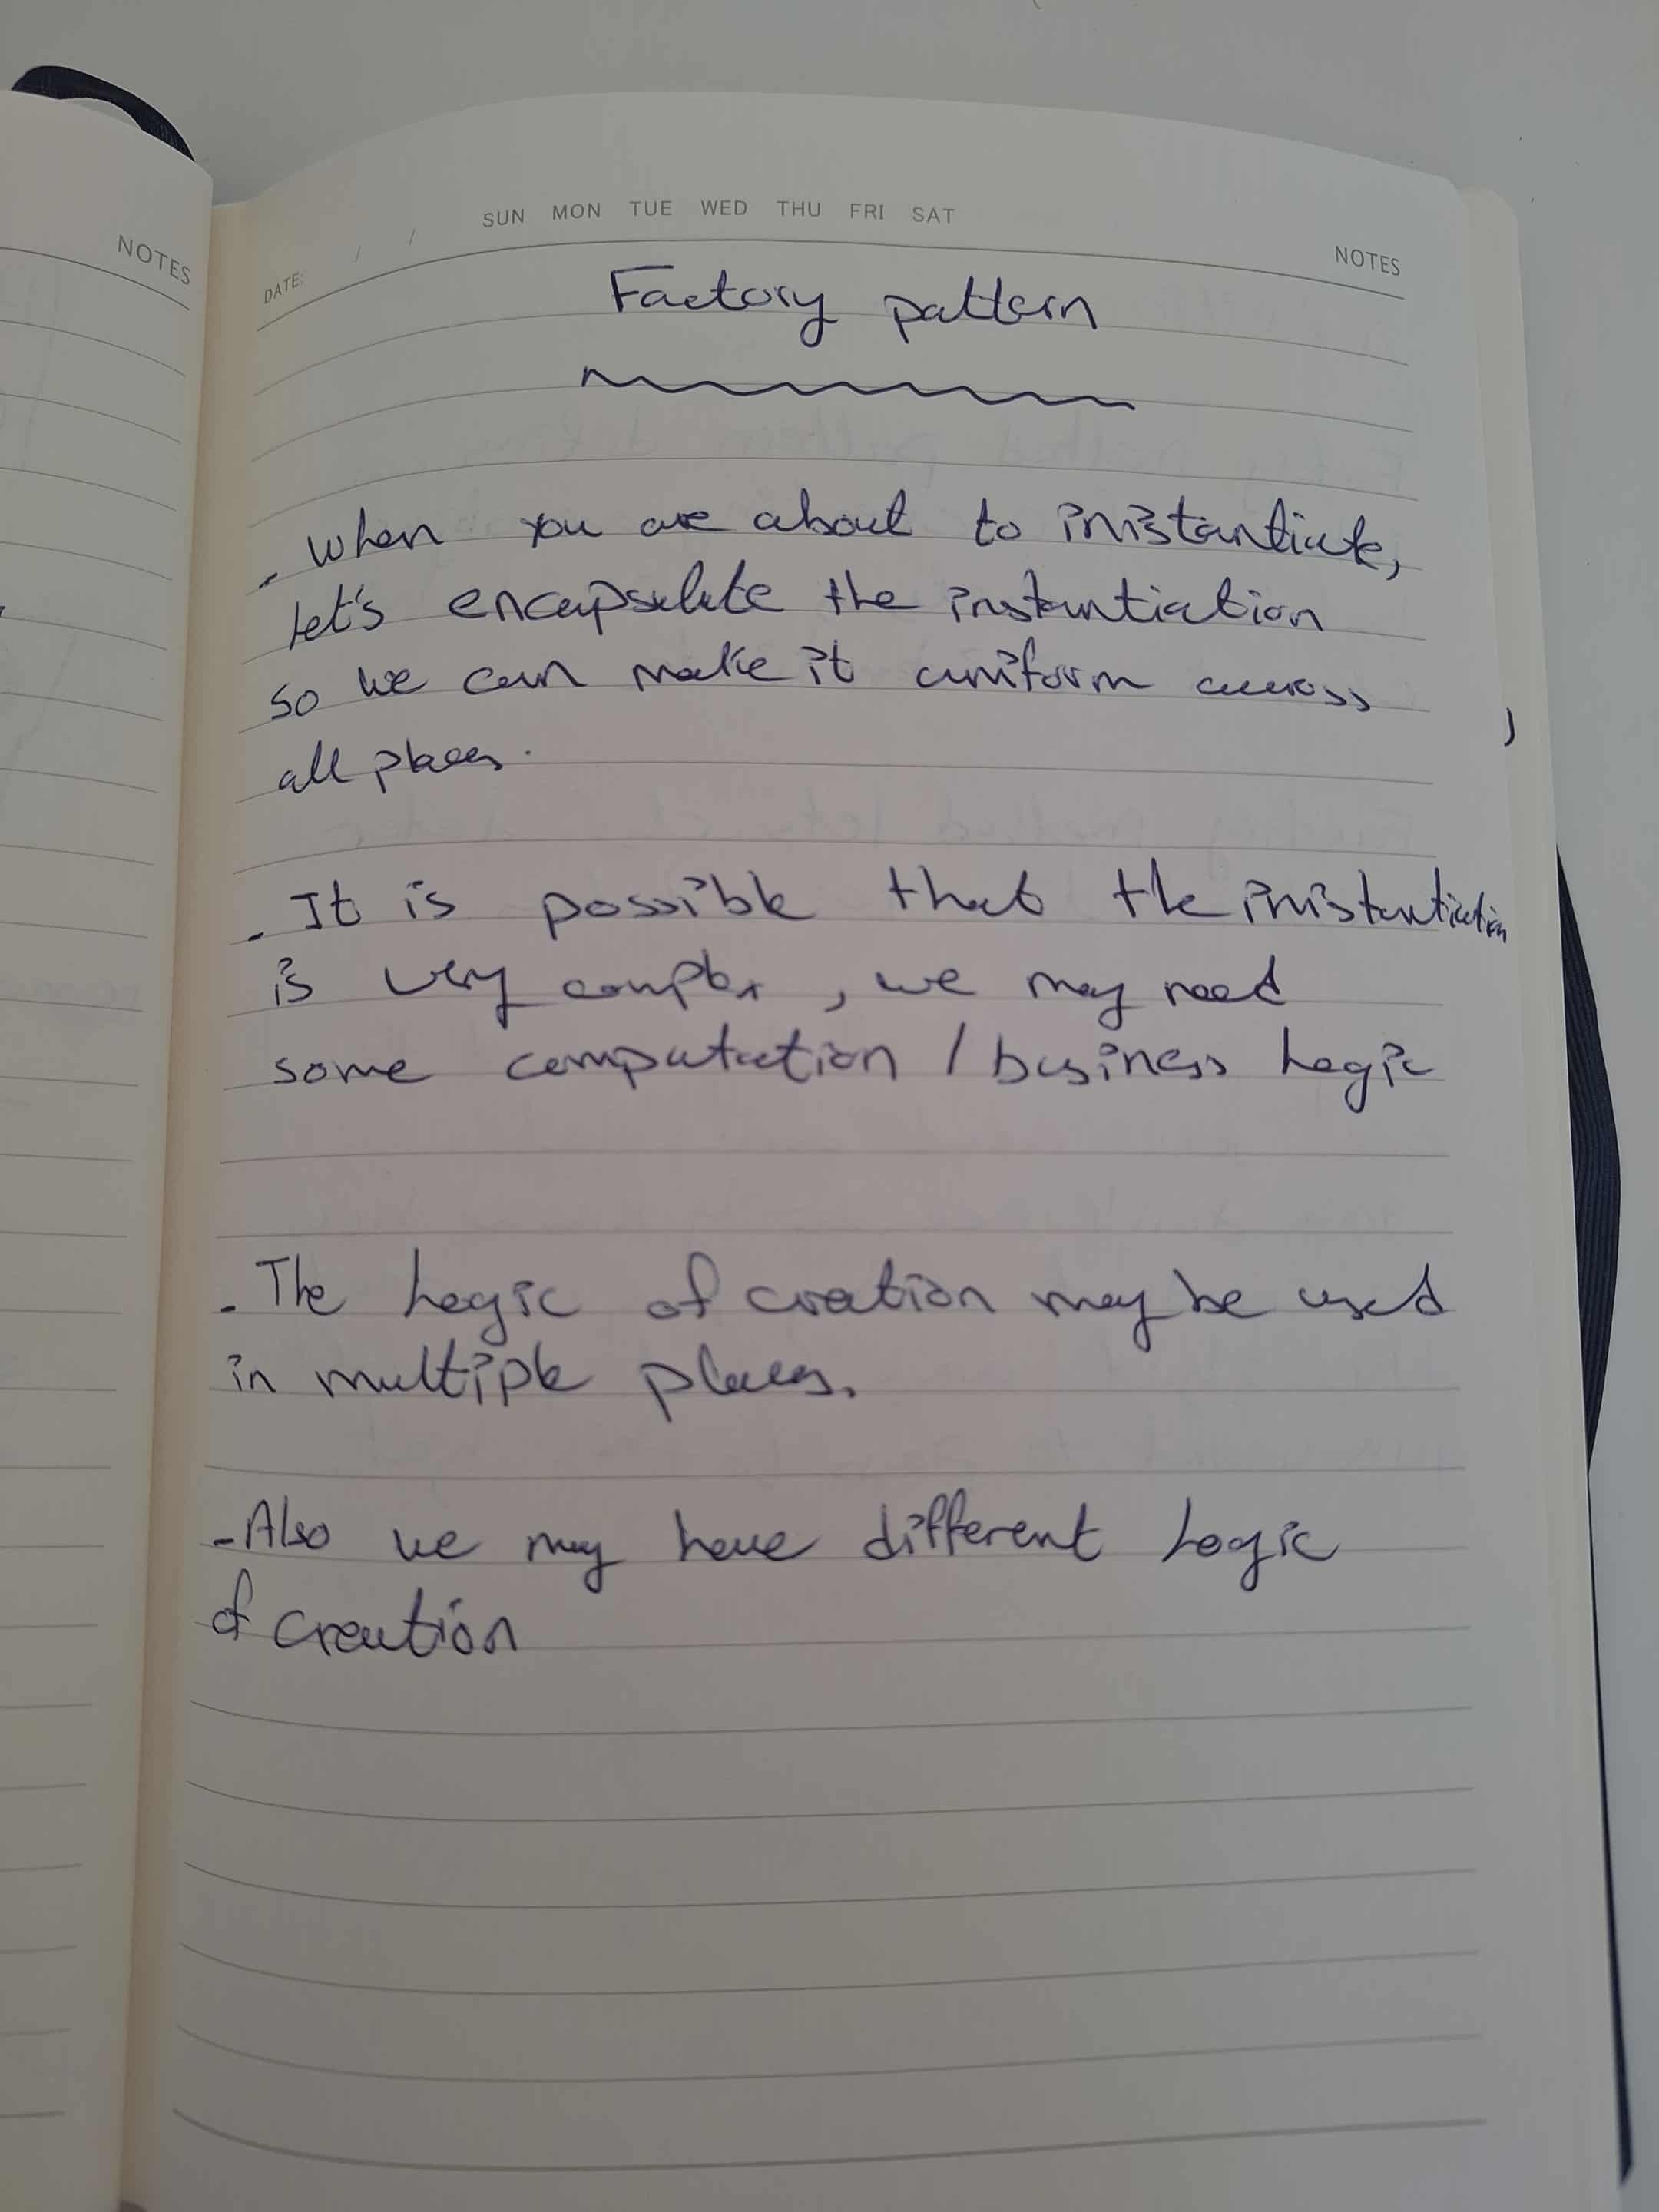 NOTES
DATE: / / SUN MON TUE WED THU FRI SAT
NOTES
Factory pattern
- when you are about to inistantiate,
let's encapsulate the instantiation
so we can make it uniform across
all places.
- It is possible that the inistantiation
is very complex, we may need
some computation / business logic
- The logic of creation may be used
in multiple places.
- Also we may have different logic
of creation